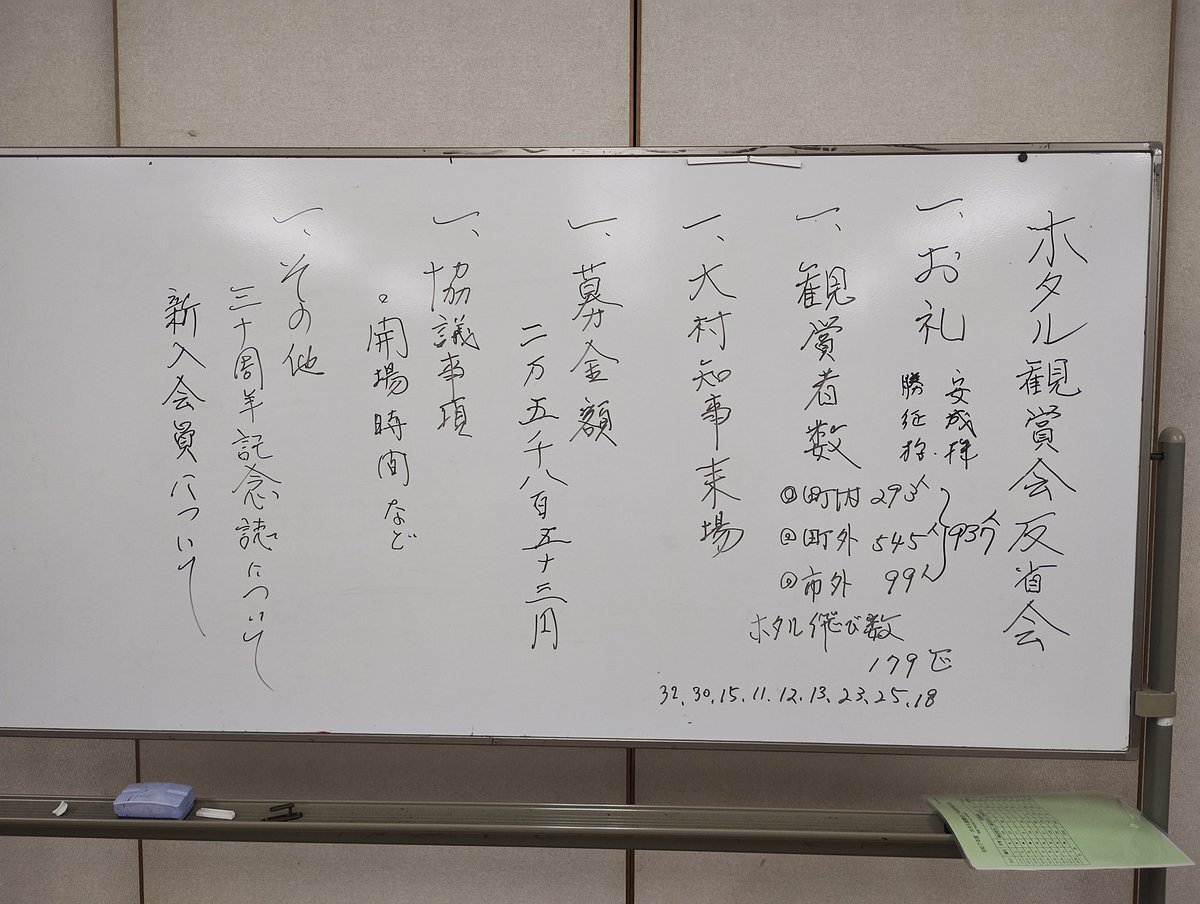 ホタル観賞会反省会
一、お礼
安成様
勝征様
一、観賞者数
◎町内 293人
◎町外 545人
◎市外 99人
937人
ホタル飛び数
179匹
32.30.15.11.12.13.23.25.18
一、大村知事来場
一、募金額
二万五千八百五十三円
一、協議事項
。開場時間など
一、その他
三十周年記念誌について
新入会員について